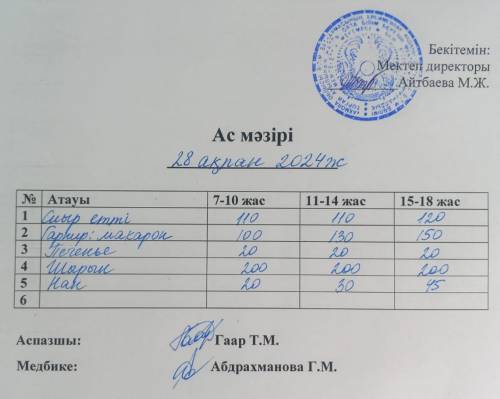 Бекітемін:
Мектеп директоры
Айтбаева М.Ж.
Ас мәзірі
28 ақпан 2024ж
№ Атауы 7-10 жас 11-14 жас 15-18 жас
1 Сиыр етті 110 110 120
2 Гарнир: макарон 100 130 150
3 Печенье 20 20 20
4 Шырын 200 200 200
5 Нан 20 30 45
6
Аспазшы: Гаар Т.М.
Медбике: Абдрахманова Г.М.